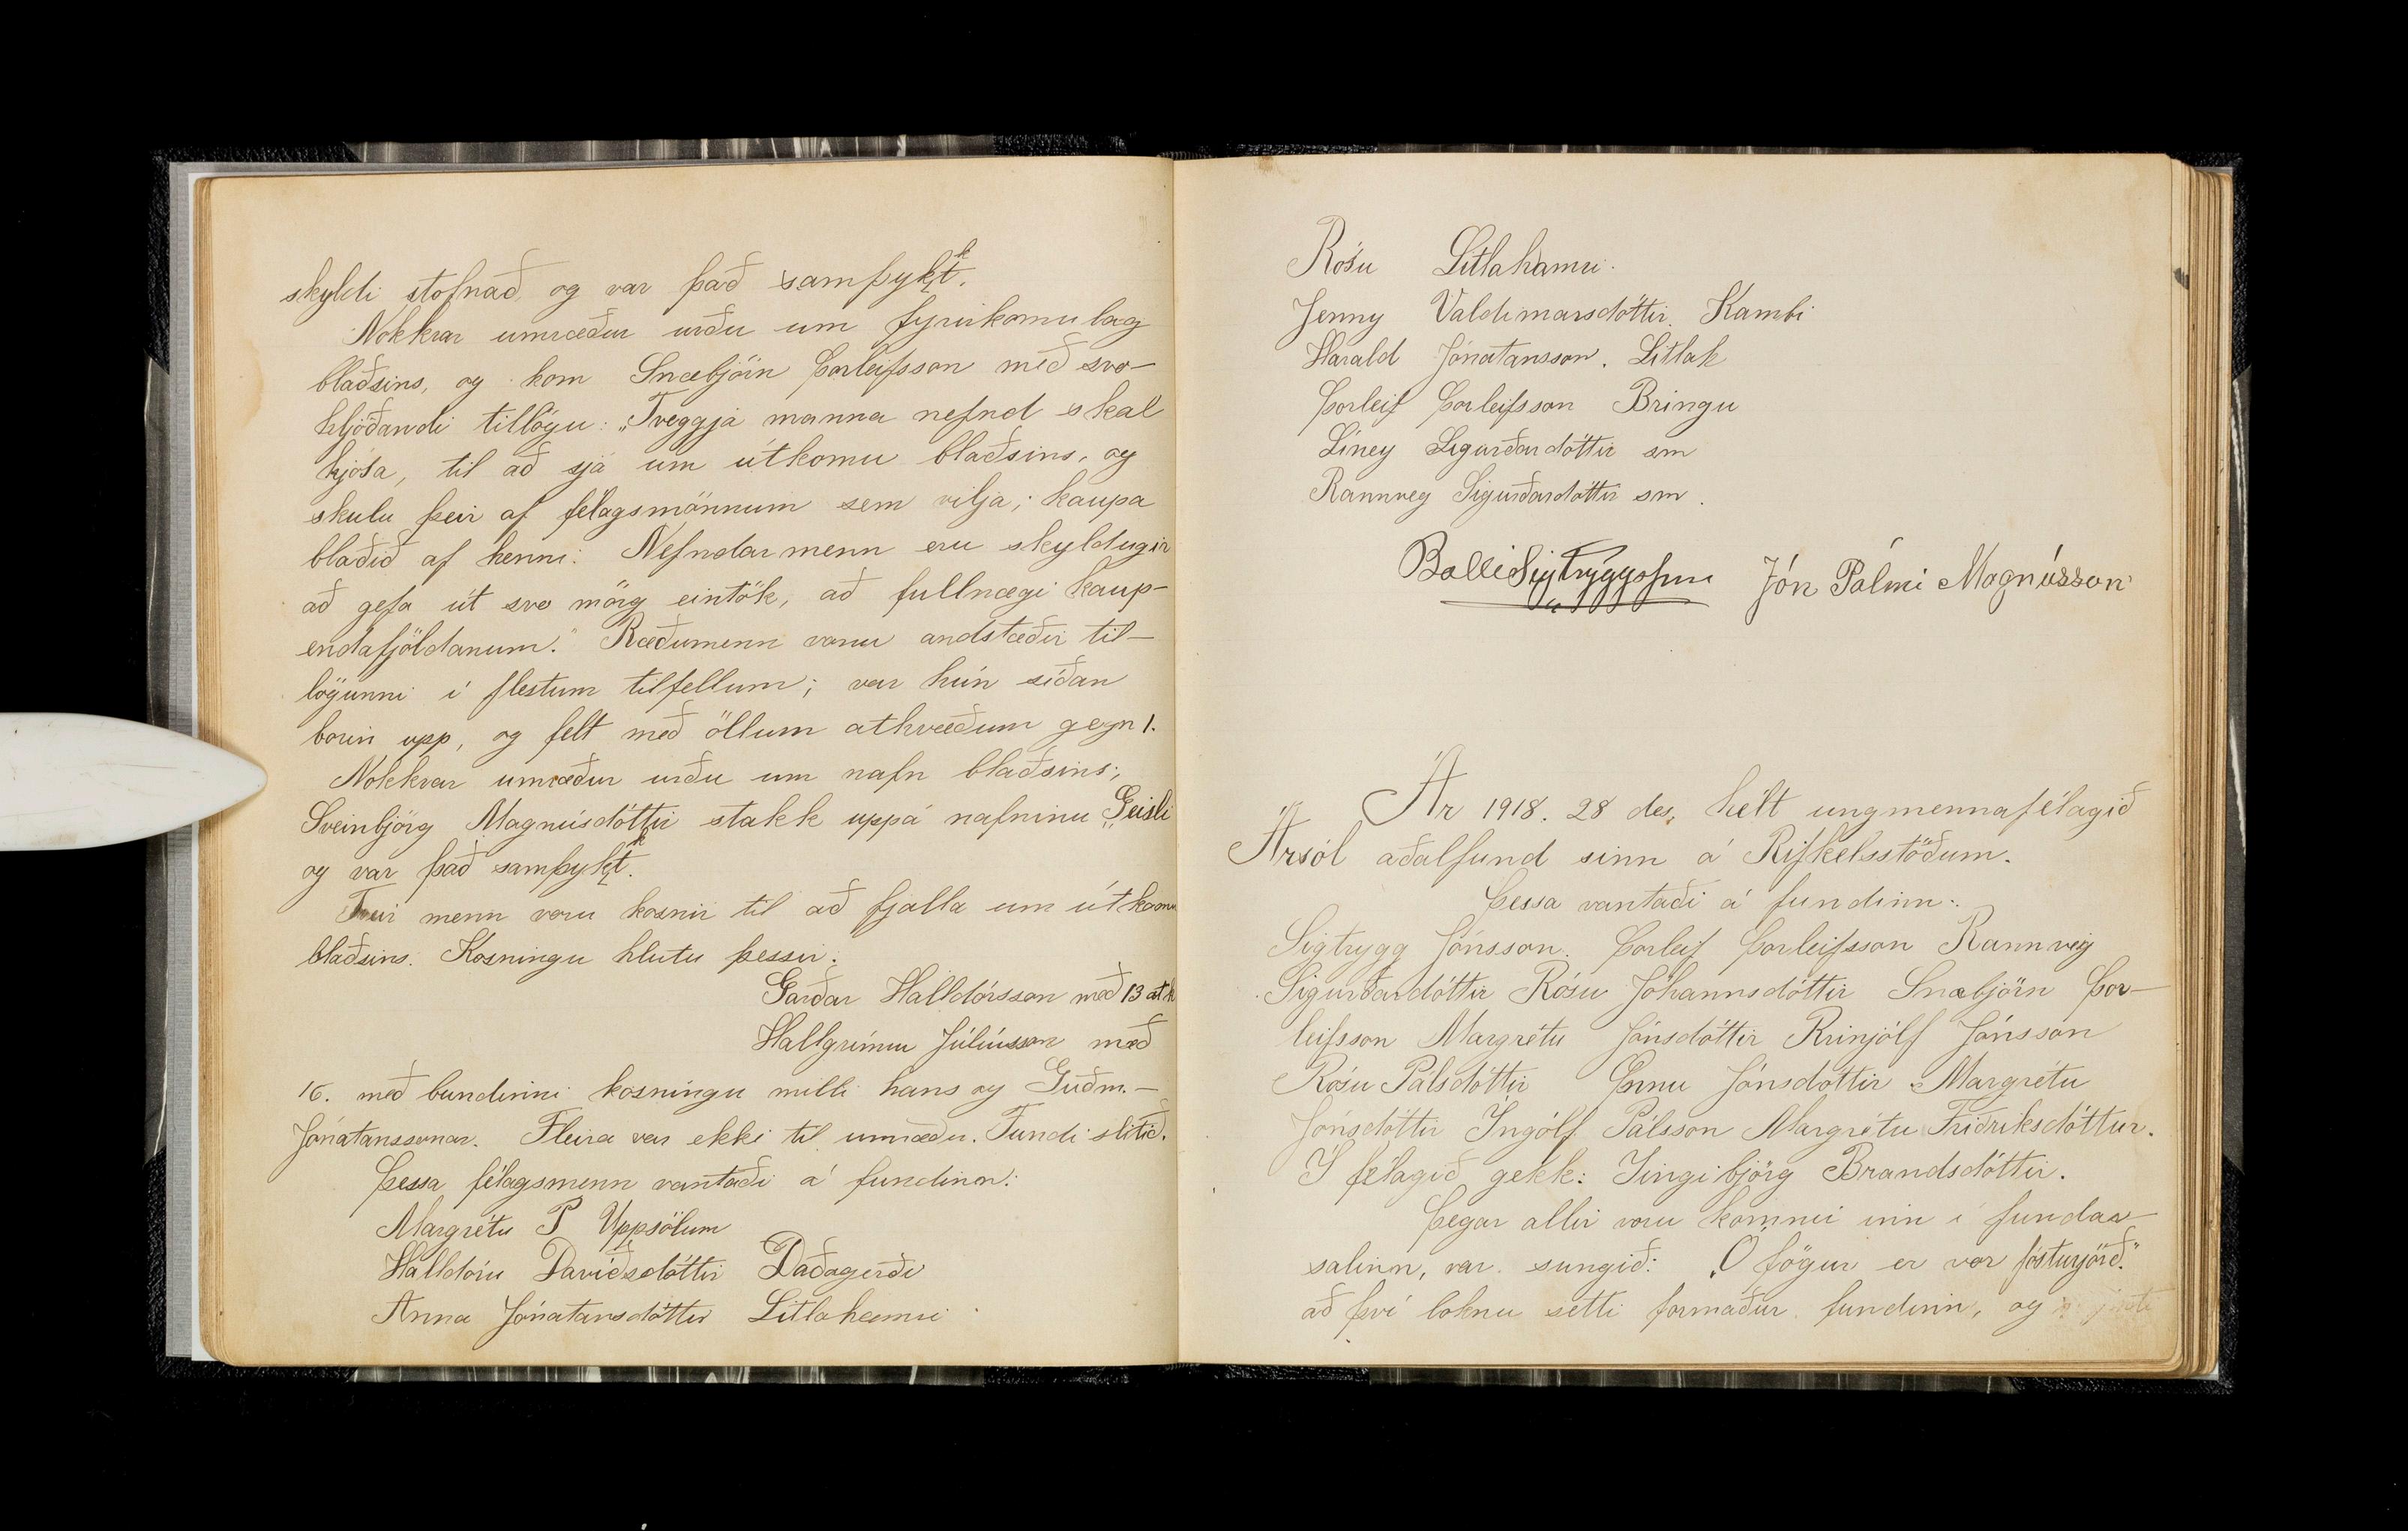 skyldi stofnað, og var það samþykkt.
Nokkrar umræður urðu um fyrirkomulag
blaðsins, og kom Snæbjörn Þorleifsson með svo-
hljóðandi tillögu: „Tveggja manna nefnd skal
kjósa, til að sjá um útkomu blaðsins, og
skulu þeir af félagsmönnum sem vilja, kaupa
blaðið af henni. Nefndarmenn eru skyldugir
að gefa út svo mörg eintök, að fullnægi kaup-
endafjöldanum." Ræðumenn voru andstæðir til-
lögunni í flestum tilfellum; var hún síðan
borin upp, og felt með öllum atkvæðum gegn 1.
Nokkrar umræður urðu um nafn blaðsins;
Sveinbjörg Magnúsdóttir stakk uppá nafninu „Geisli
og var það samþykkt.
Tveir menn voru kosnir til að fjalla um útkomu
blaðsins. Kosningu hlutu þessir:
Garðar Halldórsson með 13 atk
Hallgrímur Júlíusson með
16. með bundinni kosningu milli hans og Guðm.-
Jónatanssonar. Fleira var ekki til umræðu. Fundi slitið.
Þessa félagsmenn vantaði á fundinn:
Margrétu P Uppsölum
Halldóru Davíðsdóttir Daðagerði
Anna Jónatansdóttir Litlahamri
Rósu Litlahamri.
Jenny Valdimarsdóttir. Kambi
Harald Jónatansson. Litlah
Þorleif Þorleifsson Bringu
Líney Sigurðardóttir sm
Rannveg Sigurðardóttir sm.
Balli Sigtryggsson Jón Pálmi Magnússon
Ár 1918. 28 des. hélt ungmennafélagið
Ársól aðalfund sinn á Rifkelsstöðum.
Þessa vantaði á fundinn:
Sigtrygg Jónsson. Þorleif Þorleifsson Rannveig
Sigurðardóttir Rósu Jóhannsdóttir Snæbjörn Þor-
leifsson Margrétu Jónsdóttir Brinjólf Jónsson
Rósu Pálsdóttir Önnu Jónsdóttir Margrétu
Jónsdóttir Ingólf Pálsson Margrétu Friðriksdóttur.
Í félagið gekk: Ingibjörg Brandsdóttir.
Þegar allir voru komnir inn í fundar-
salinn, var sungið: „Ó fögur er vor fósturjörð."
að því loknu setti formaður fundinn, og